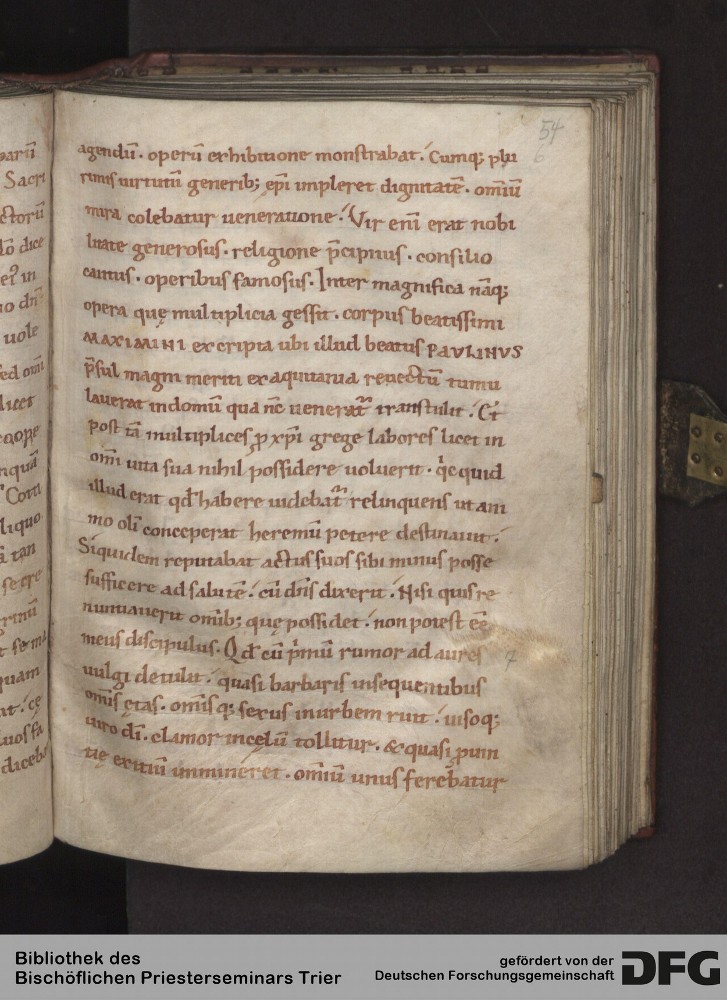 54
6
agendū. operū exhibitione monstrabat. Cumq; plu
rimis uirtutū generib; ep̄i impleret dignitatē. om̄iū
mira colebatur ueneratione. Vir eni erat nobi
litate generosus. religione p̄cipuus. consilio
cautus. operibus famosus. Inter magnifica nāq;
opera quę multiplicia gessit. corpus beatissimi
MAXIMINI ex cripta ubi illud beatus PAVLINVS
p̄sul magni meriti ex aquitania reuectū tumu
lauerat in domū qua nc̄ ueneratᷣ transtulit. Et
post tā multiplices ꝓ xp̄i grege labores licet in
om̄i uita sua nihil possidere uoluerit. qͥcquid
illud erat qd̄ habere uidebatᷣ relinquens ut am
mo oli conceperat heremū petere destinauit.
Siquidem reputabat actus suos sibi minus posse
sufficere ad salutē. cū dn̄s dixerit. Nisi quis re
nuntiauerit omīb; quę possidet. non potest eē
meus discipulus. Qd̄ cū p̄mū rumor ad aures
uulgi detulit. quasi barbaris insequentibus
om̄is ętas. om̄isq; sexus in urbem ruit. uisoq;
uiro dī. clamor in cęlū tollitur. & quasi ꝓuin
tię exitiū immineret. om̄iū unus ferebatur
Bibliothek des
Bischöflichen Priesterseminars Trier
gefördert von der
Deutschen Forschungsgemeinschaft
DFG